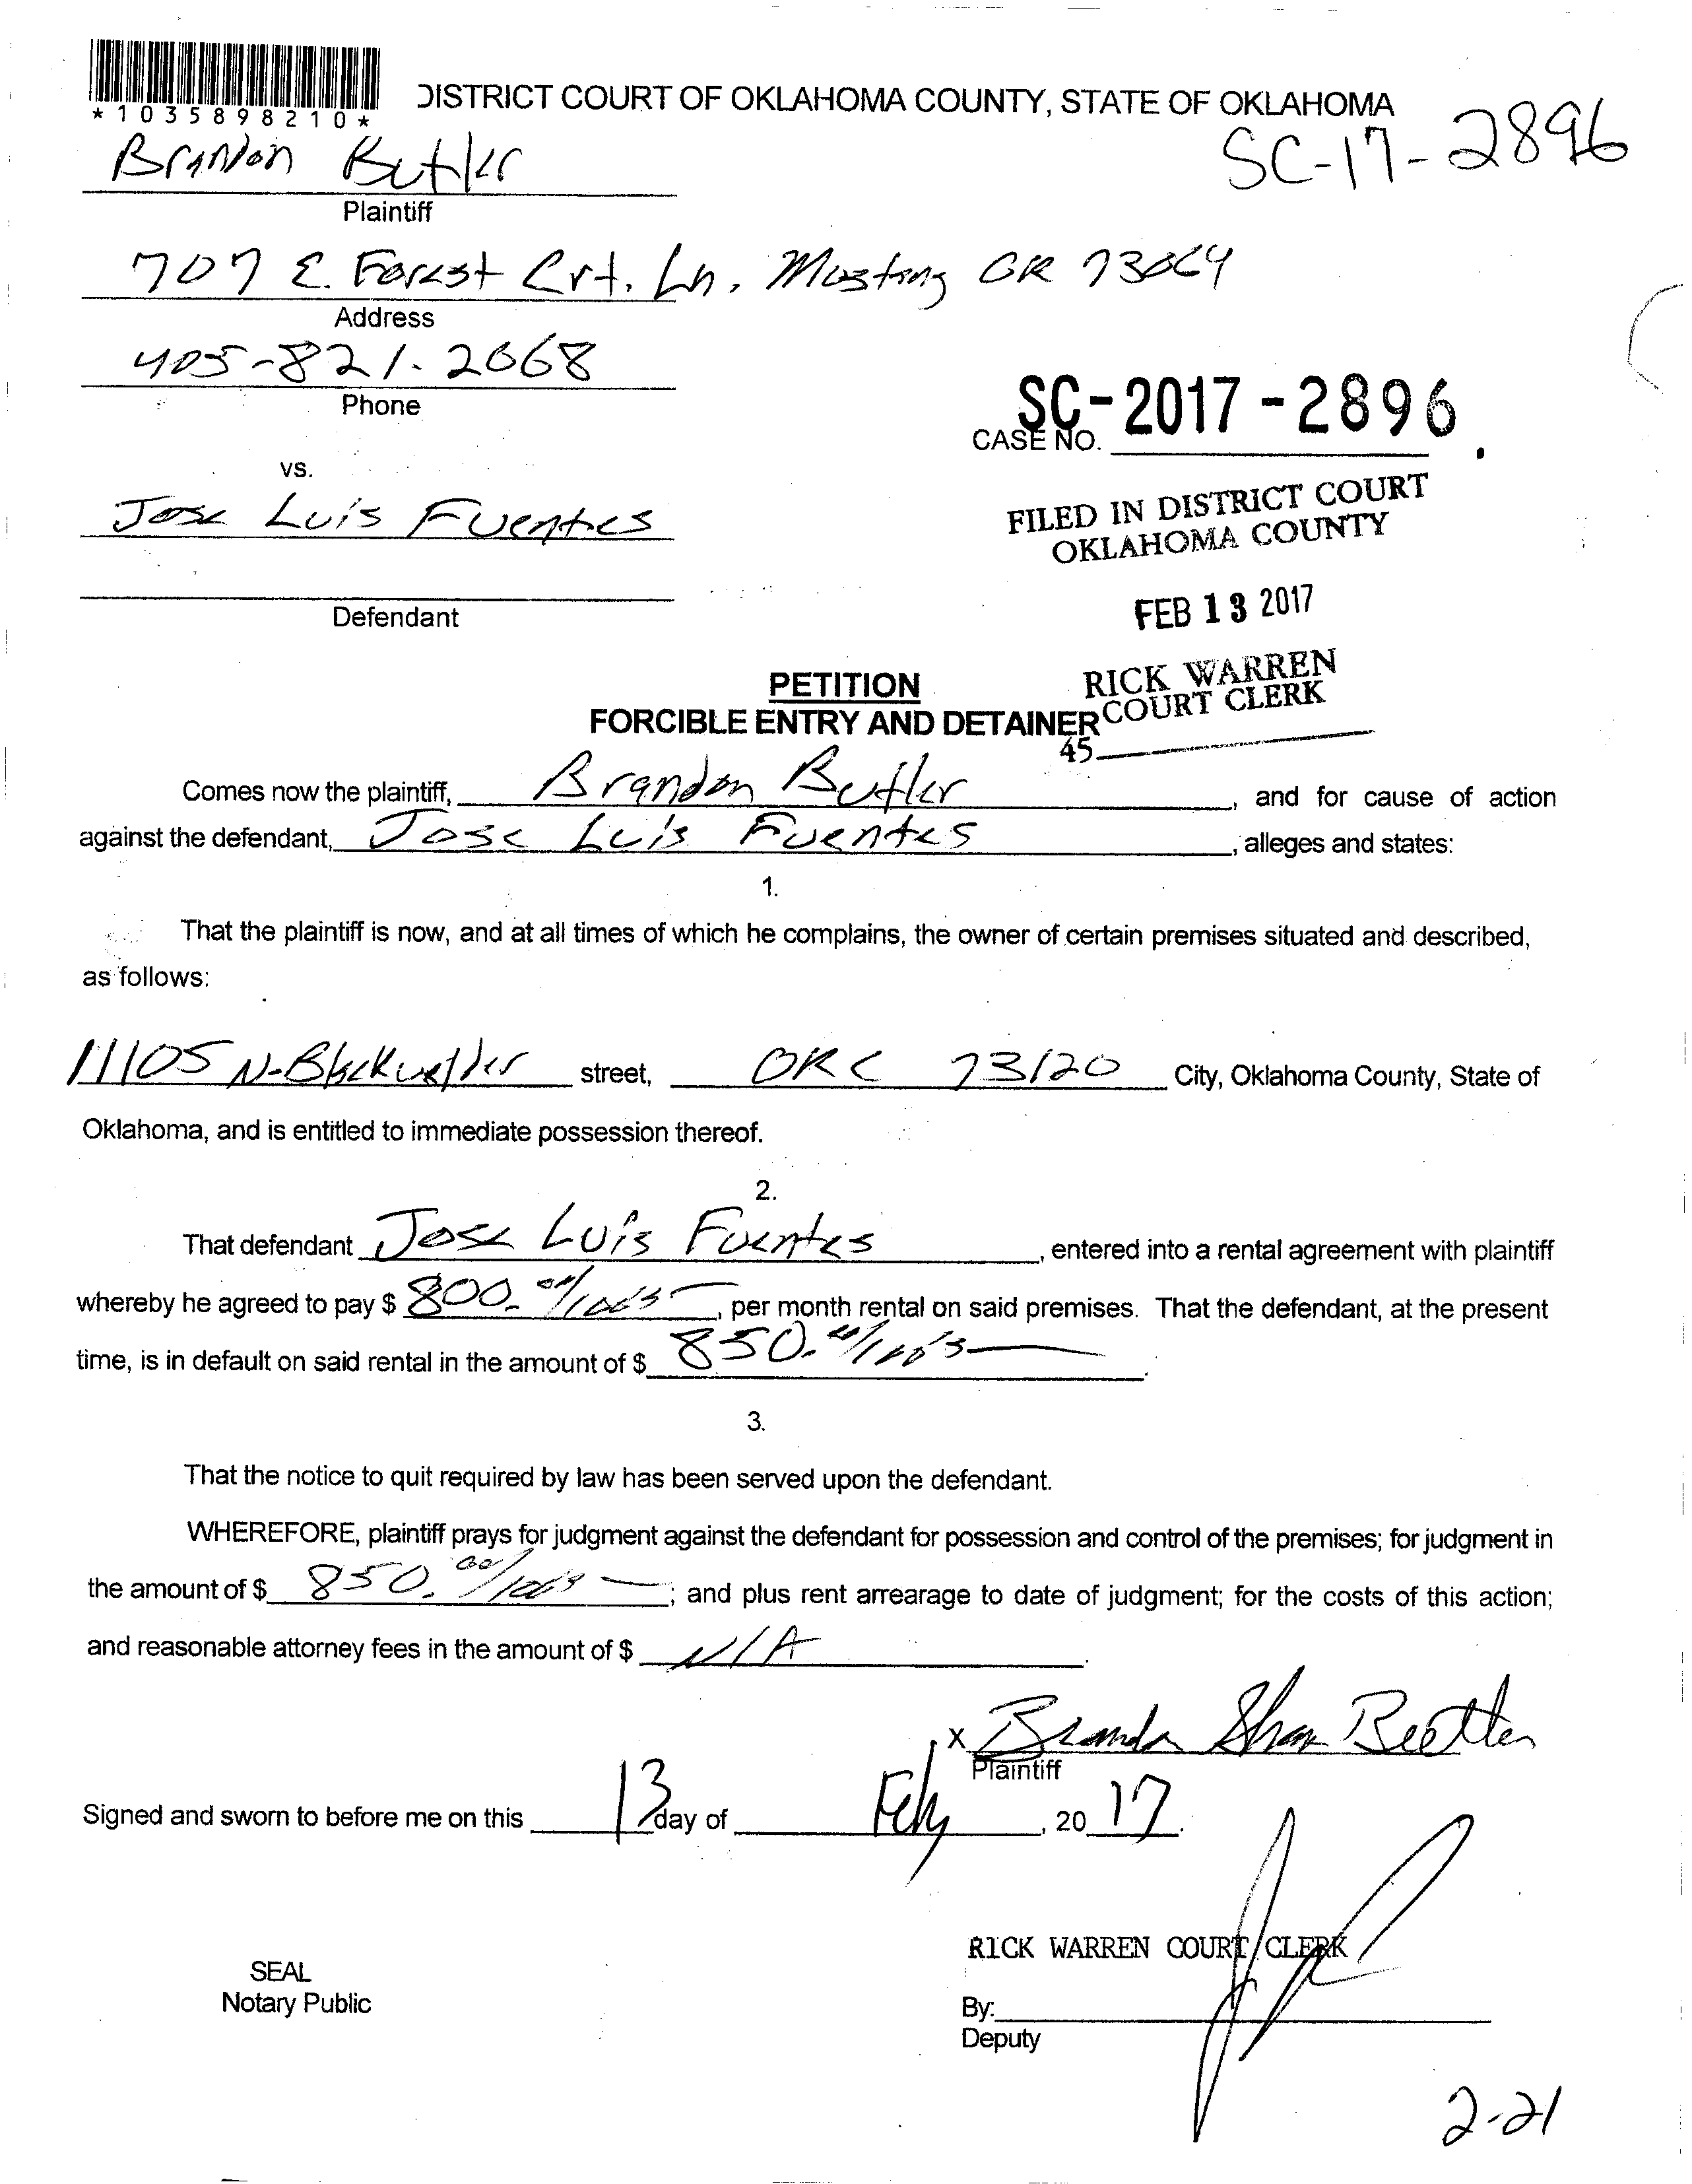 *1035898210*
DISTRICT COURT OF OKLAHOMA COUNTY, STATE OF OKLAHOMA
SC-17-2896
Brandon Butler
Plaintiff
707 E. Forest Crt. Ln, Mustang OK 73064
Address
405-821-2668
Phone
SC-2017-2896
CASE NO.
vs.
Jose Luis Fuentes
FILED IN DISTRICT COURT
OKLAHOMA COUNTY
Defendant
FEB 13 2017
RICK WARREN
COURT CLERK
45
PETITION
FORCIBLE ENTRY AND DETAINER
Comes now the plaintiff, Brandon Butler, and for cause of action
against the defendant, Jose Luis Fuentes, alleges and states:
1.
That the plaintiff is now, and at all times of which he complains, the owner of certain premises situated and described,
as follows:
11105 N. Blackwelder street, OKC 73120 City, Oklahoma County, State of
Oklahoma, and is entitled to immediate possession thereof.
2.
That defendant Jose Luis Fuentes, entered into a rental agreement with plaintiff
whereby he agreed to pay $ 800. 00/100's, per month rental on said premises. That the defendant, at the present
time, is in default on said rental in the amount of $ 850. 00/100's.
3.
That the notice to quit required by law has been served upon the defendant.
WHEREFORE, plaintiff prays for judgment against the defendant for possession and control of the premises; for judgment in
the amount of $ 850. 00/100's; and plus rent arrearage to date of judgment; for the costs of this action;
and reasonable attorney fees in the amount of $ N/A.
X Brandon Shan Butler
Plaintiff
Signed and sworn to before me on this 13 day of Feby, 2017.
RICK WARREN COURT CLERK
SEAL
Notary Public
By:
Deputy
2-21